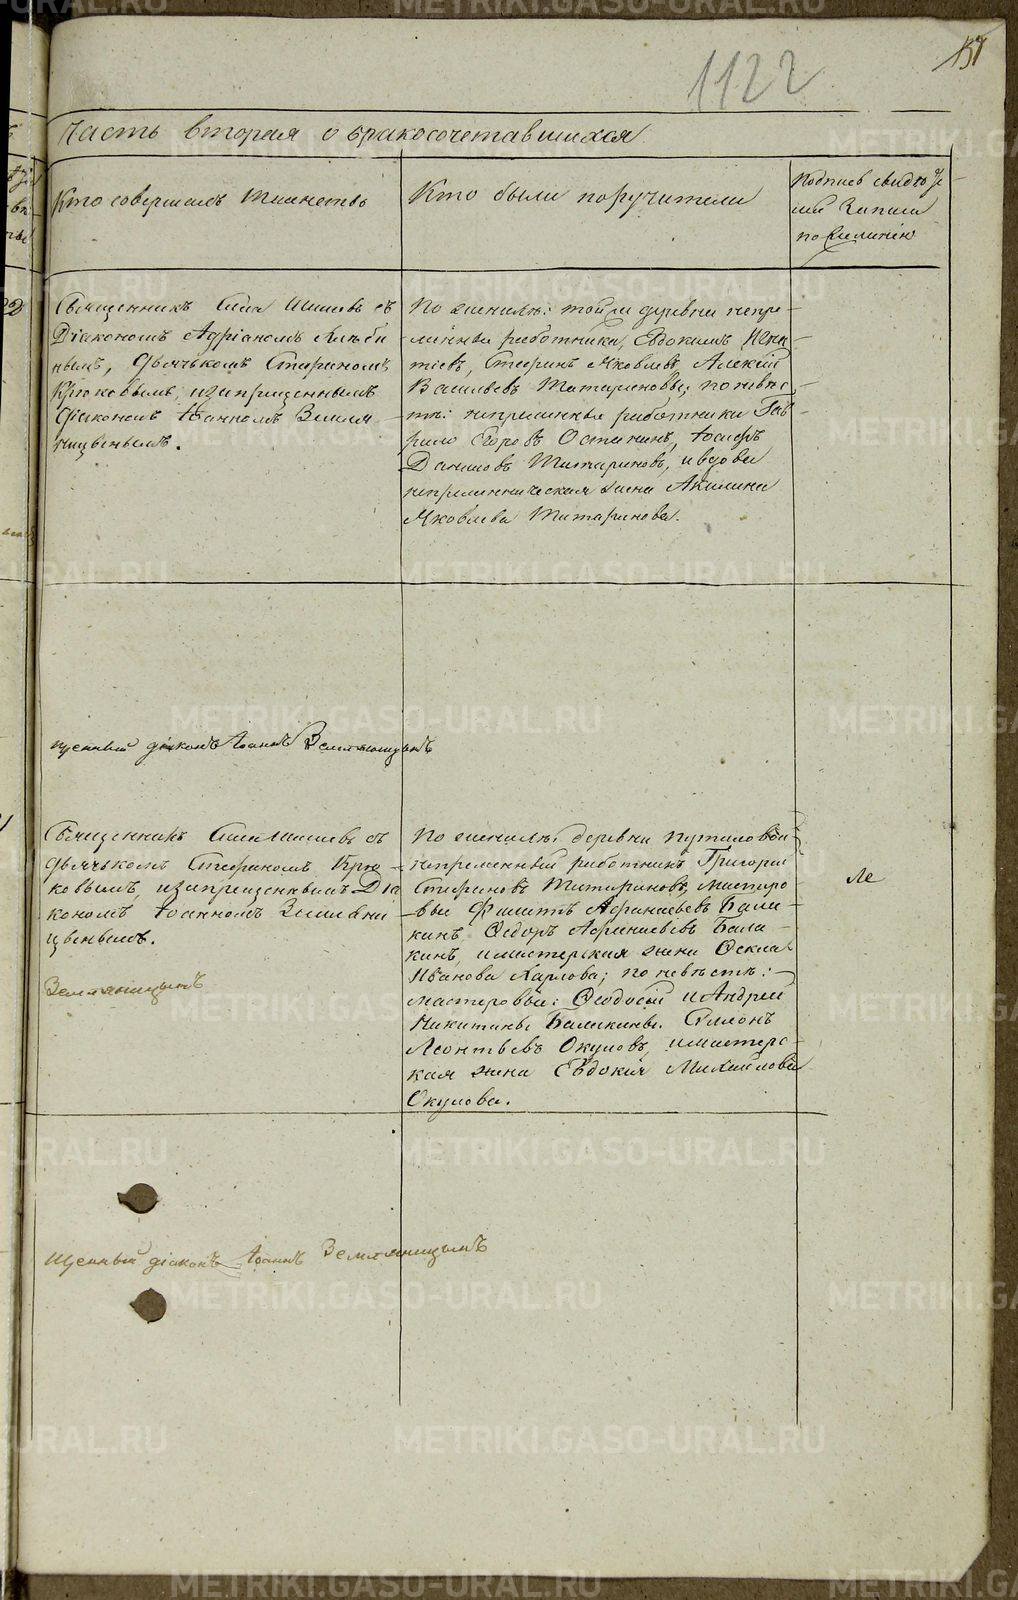 1122
157
Часть вторая о бракосочетавшихся
Кто совершалъ таинство
Кто были поручители
Подпись свидѣте
лей записи
по желанію
Священникъ Сила Шишовъ съ
Діакономъ Адріаномъ Хлѣби
нымъ, дьячькомъ Стефаномъ
Крюковымъ, и запрещеннымъ
діаконом Іоанномъ Земля
ницынымъ.
По женихѣ: той же деревни непре-
мѣнные работники, Евдокимъ Игна
тіевъ, Стефанъ Яковлевъ, Алексѣй
Васильевъ Татариновы; по невѣс
тѣ: непремѣнные работники Гав
рило Егоровъ Останинъ, Іосифъ
Даниловъ Татариновъ, и вдова
непремѣнническая жена Акилина
Яковлева Татаринова.
щенный діаконъ Іоаннъ Земляницынъ
Священникъ Сила Шишовъ съ
дьячькомъ Стефаномъ Крю-
ковымъ, и запрещеннымъ Діа
кономъ Іоанномъ Земляни
цынымъ.
Земляницынъ
По женихѣ: деревни Путиловой
непременный работникъ Григорей
Стефановъ Татариновъ, мастеро-
вые Филатъ Афанасьевъ Бала-
кинъ, Ѳедоръ Афанасьевъ Бала-
кинъ, и мастерская жена Оскла
Иванова Карпова; по невѣстѣ:
мастеровые: Ѳеодосій и Андрей
Никитины Балакины. Симонъ
Леонтьевъ Окуловъ, и мастерс-
кая жена Евдокія Михайлова
Окулова.
ле
щенный діаконъ Іоаннъ Земляницынъ
METRIKI.GASO-URAL.RU